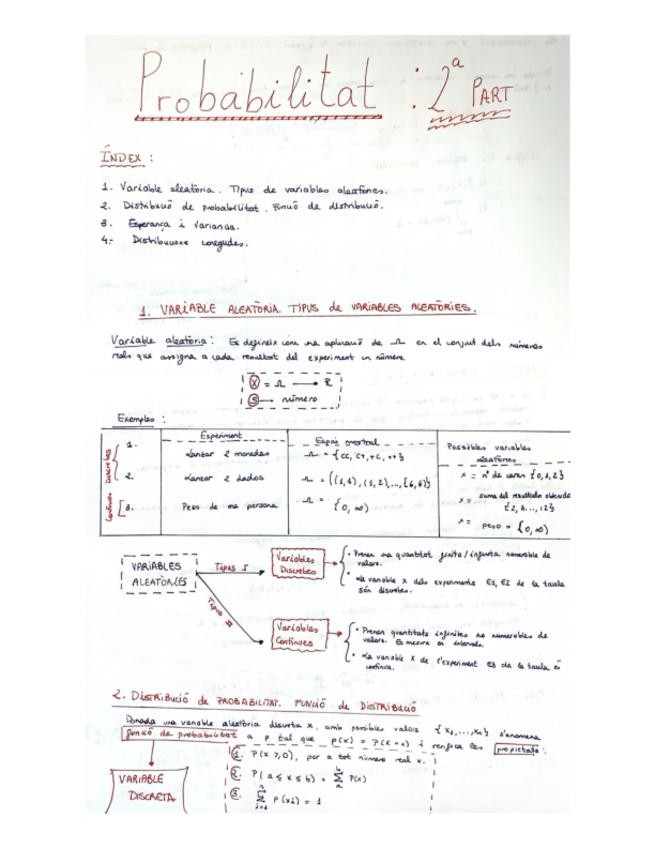 Probabilitat : 2ª PART
ÍNDEX :
1. Variable aleatòria. Tipus de variables aleatòries.
2. Distribució de probabilitat. Funció de distribució.
3. Esperança i Variància.
4.- Distribucions conegudes.
1. VARIABLE ALEATÒRIA. TIPUS de VARIABLES ALEATÒRIES.
Variable aleatòria : Es defineix com una aplicació de Ω en el conjut dels números
reals que assigna a cada resultat del experiment un número.
X = Ω → R
S → número
Exemples :
Experiment
Espai mostral
Possibles variables
aleatòries
Discretes
1. Lanzar 2 monedas
Ω = {CC, C+, +C, ++}
X = nº de caras {0,1,2}
2. Lanzar 2 dados
Ω = {(1,1), (1,2),..., (6,6)}
X = suma del resultado
{2, 3..., 12}
Contínues
3. Peso de una persona
Ω = {0, ∞)
X = peso = {0, ∞)
VARIABLES
ALEATÒRIES
Tipus I
Variables
Discretes
• Prenen una quantitat finita / infinita numerable de
valors.
• La variable X dels experiments E1, E2 de la taula
són discretes.
Tipus II
Variables
Contínues
• Prenen quantitats infinites no numerables de
valors. Es mesura en intervals.
• La variable X de l'experiment E3 de la taula és
contínua.
2. DISTRIBUCIÓ de PROBABILITAT. FUNCIÓ de DISTRIBUCIÓ
Donada una variable aleatòria discreta X, amb possibles valors {x1,...,xn} s'anomena
funció de probabilitat a p tal que p(x) = P(X = x) i verifica les propietats :
VARIABLE
DISCRETA
1. P(x ≥ 0), per a tot número real x.
2. P(a ≤ x ≤ b) = Σ P(x)
3. Σ p(xi) = 1